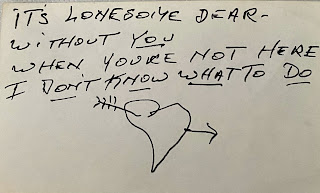 IT'S LONESOME DEAR-
WITHOUT YOU
WHEN YOU'RE NOT HERE
I DON'T KNOW WHAT TO DO